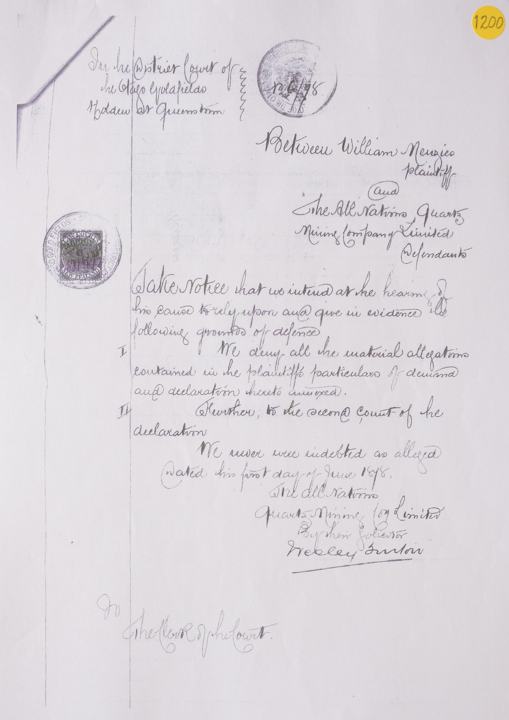 1200
In the District Court of
the Otago Goldfields
Holden at Queenstown
Between William Menzies
plaintiff
and
The All Nations Quartz
Mining Company Limited
Defendants
Take Notice that we intend at the hearing of
this cause to rely upon and give in evidence the
following grounds of defence
I We deny all the material allegations
contained in the plaintiffs particulars of demand
and declaration hereto annexed.
II Further, to the second count of the
declaration
We never were indebted as alleged
Dated this first day of June
The All Nations
Quartz Mining Coy Limited
By their Solicitor
Wesley Turton
To
The Clerk of the Court.